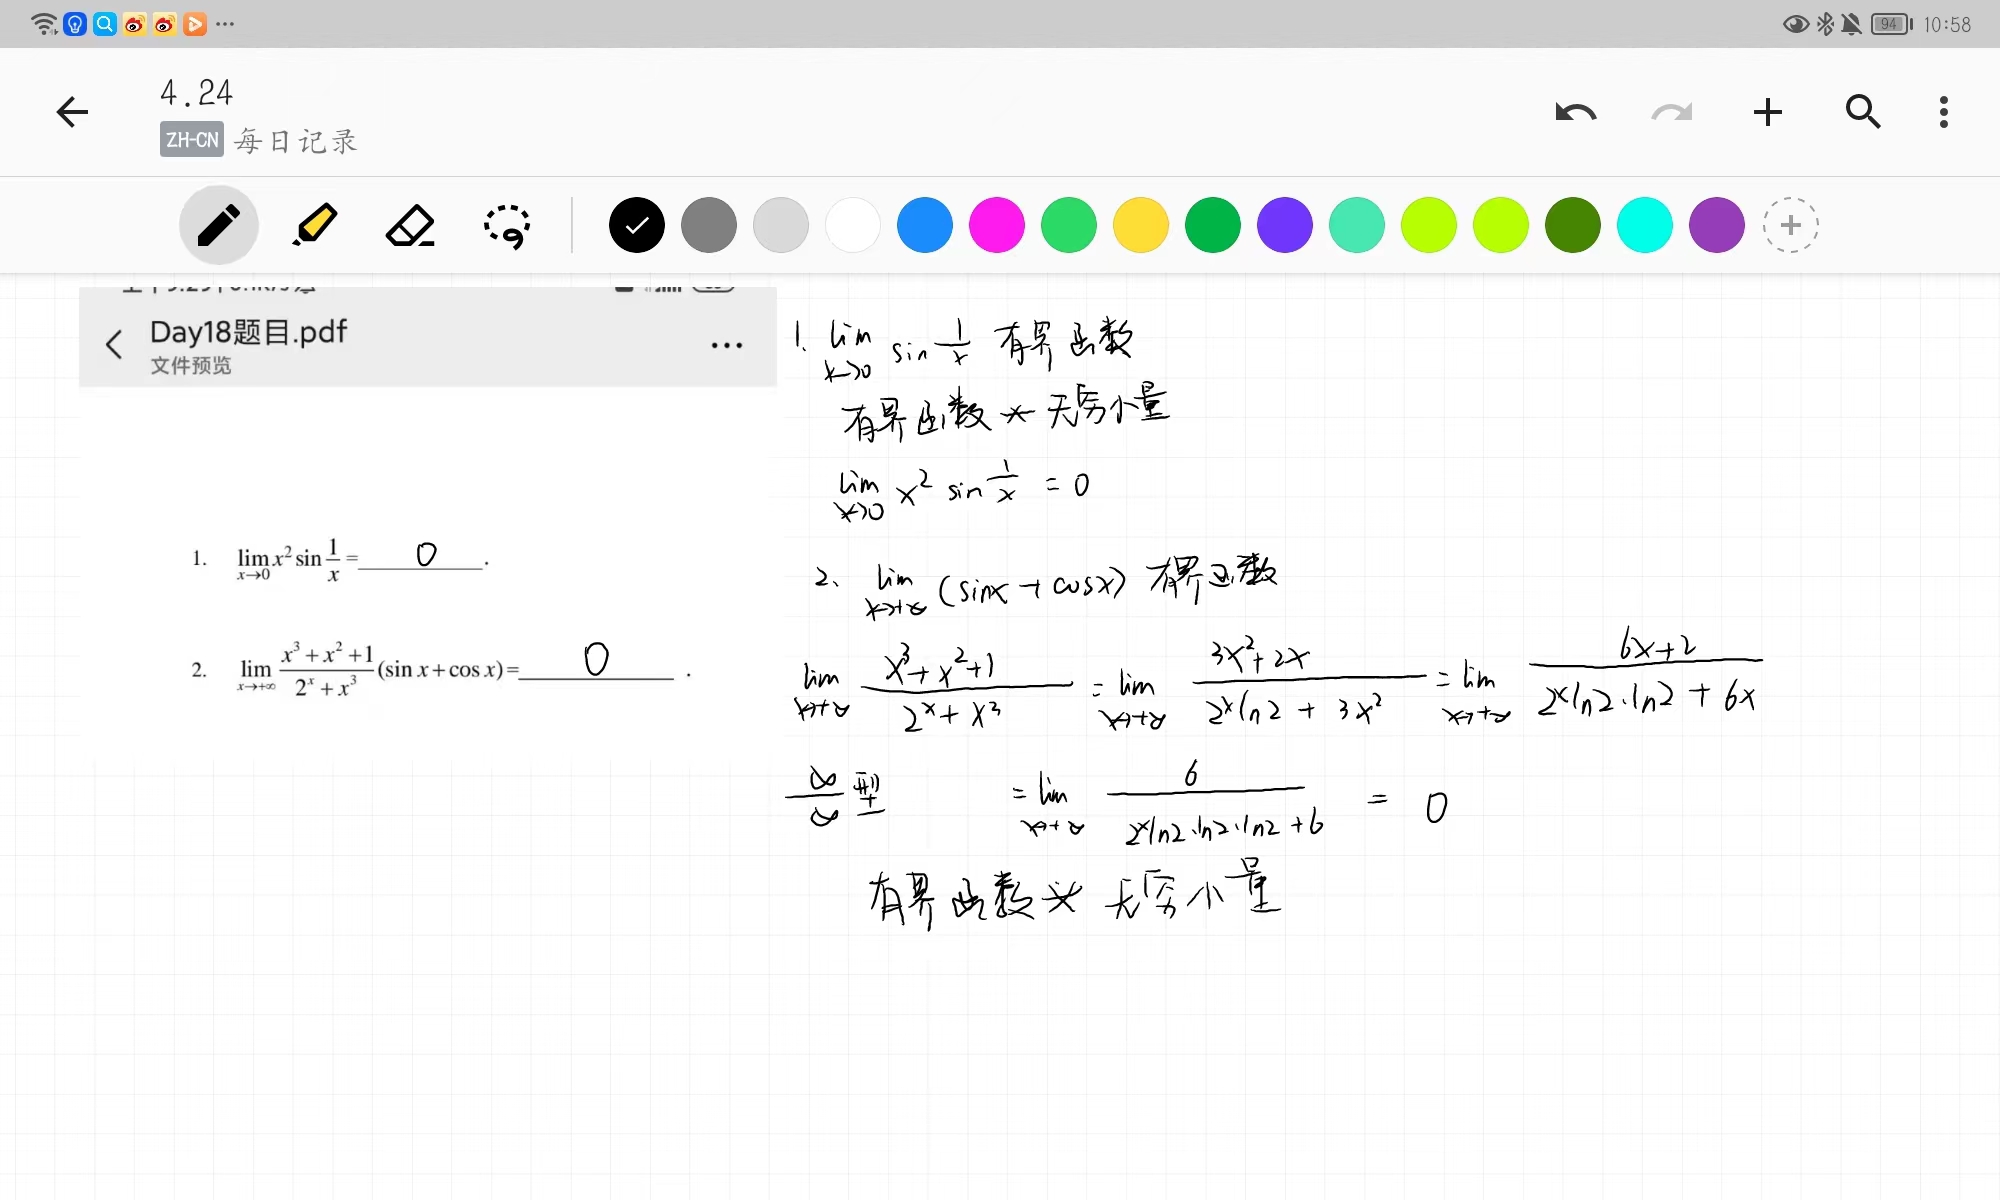 94 10:58
4.24
ZH-CN 每日记录
Day18题目.pdf
文件预览
1. lim x→0 x² sin 1/x = 0 .
2. lim x→+∞ (x³+x²+1)/(2ˣ+x³) (sin x+cos x)= 0 .
1. lim x→0 sin 1/x 有界函数
有界函数 × 无穷小量
lim x→0 x² sin 1/x = 0
2、 lim x→+∞ (sinx + cosx) 有界函数
lim x→+∞ (x³+x²+1)/(2ˣ+x³) = lim x→+∞ (3x²+2x)/(2ˣln2 + 3x²) = lim x→+∞ (6x+2)/(2ˣln2·ln2 + 6x)
∞/∞ 型 = lim x→+∞ 6/(2ˣln2·ln2·ln2 +6) = 0
有界函数 × 无穷小量